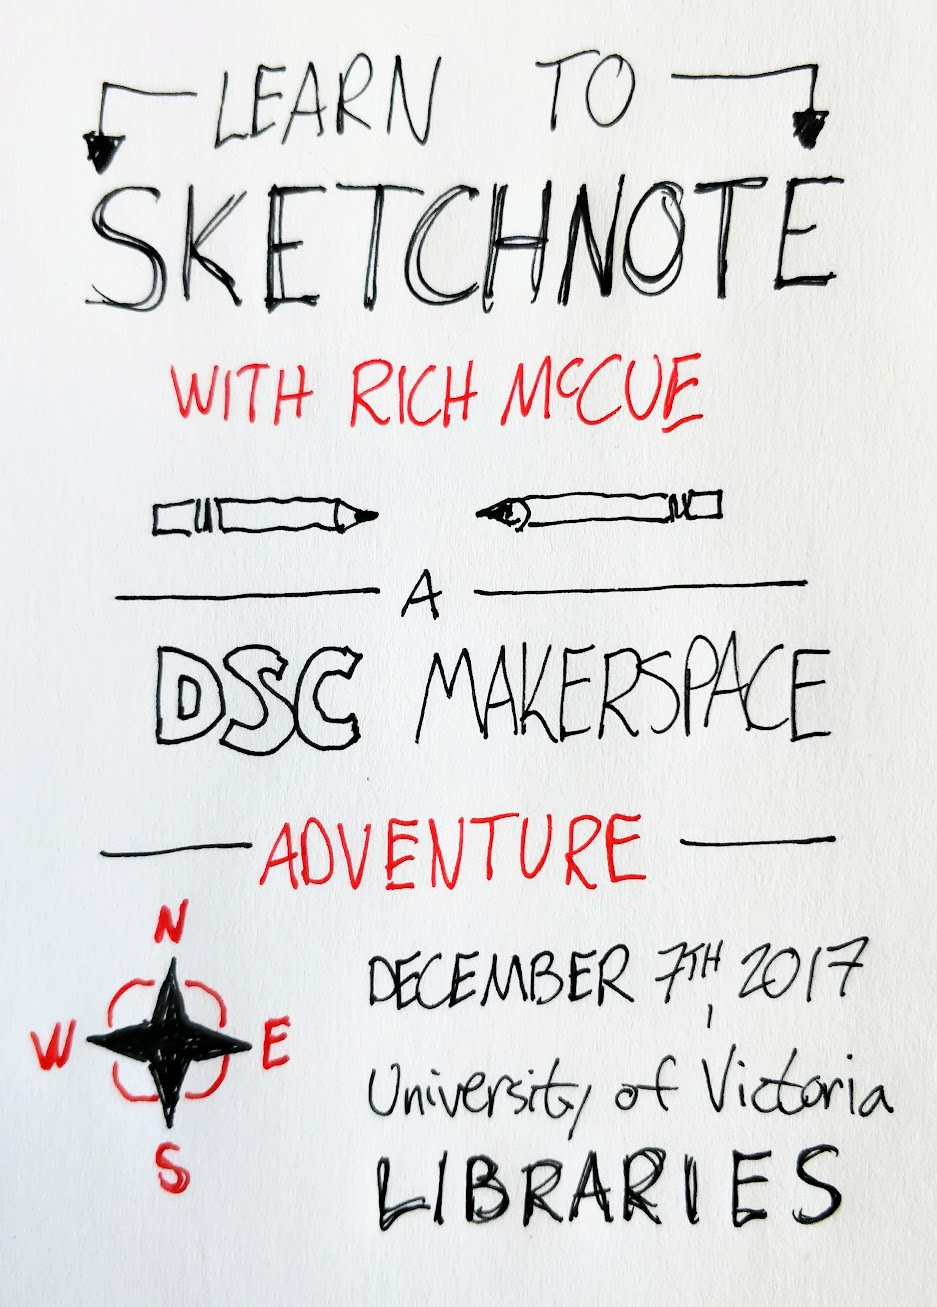 LEARN TO
SKETCHNOTE
WITH RICH McCUE
A
DSC MAKERSPACE
ADVENTURE
N
W E
S
DECEMBER 7TH, 2017
University of Victoria
LIBRARIES